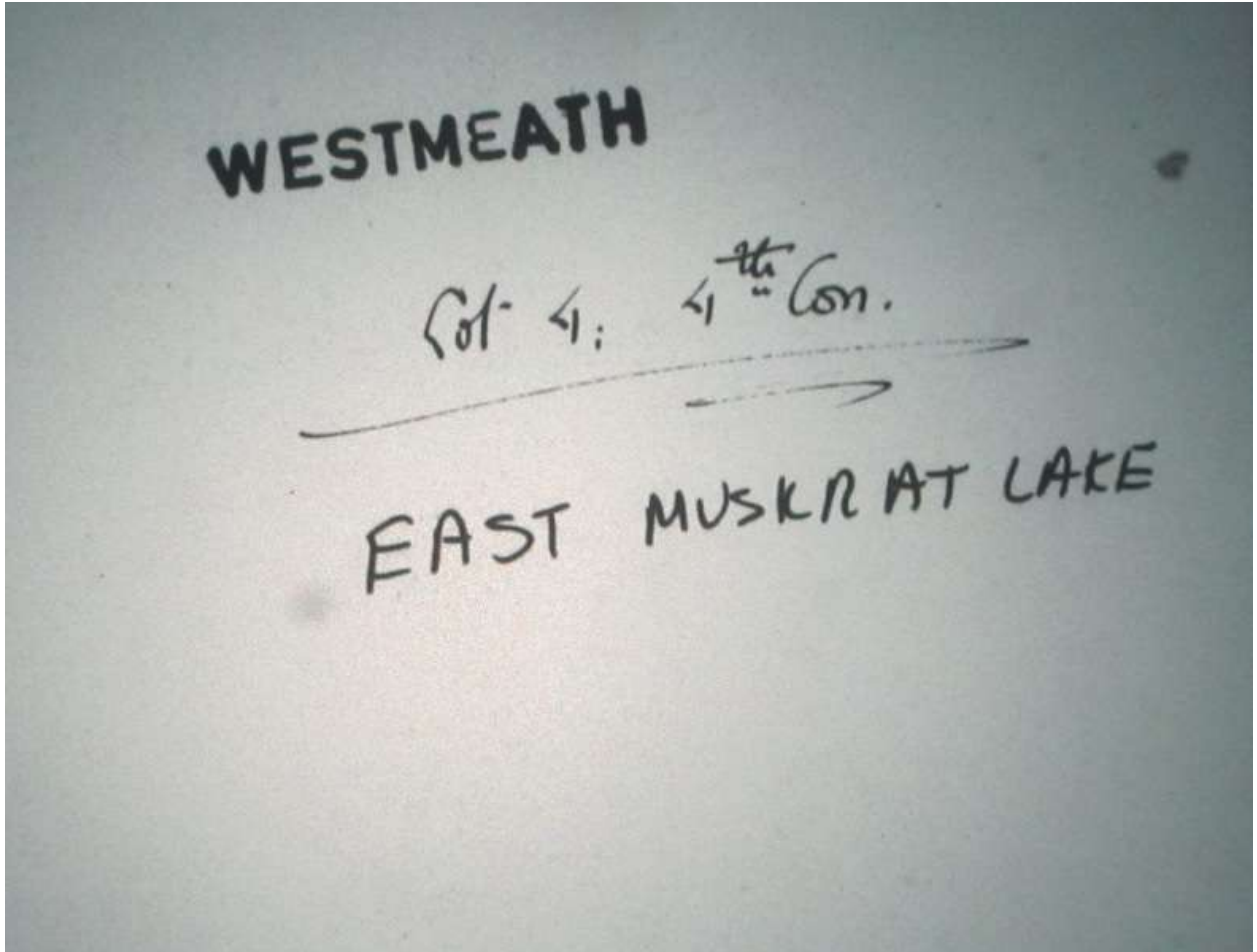 WESTMEATH
Lot 4: 4th Con.
EAST MUSKRAT LAKE